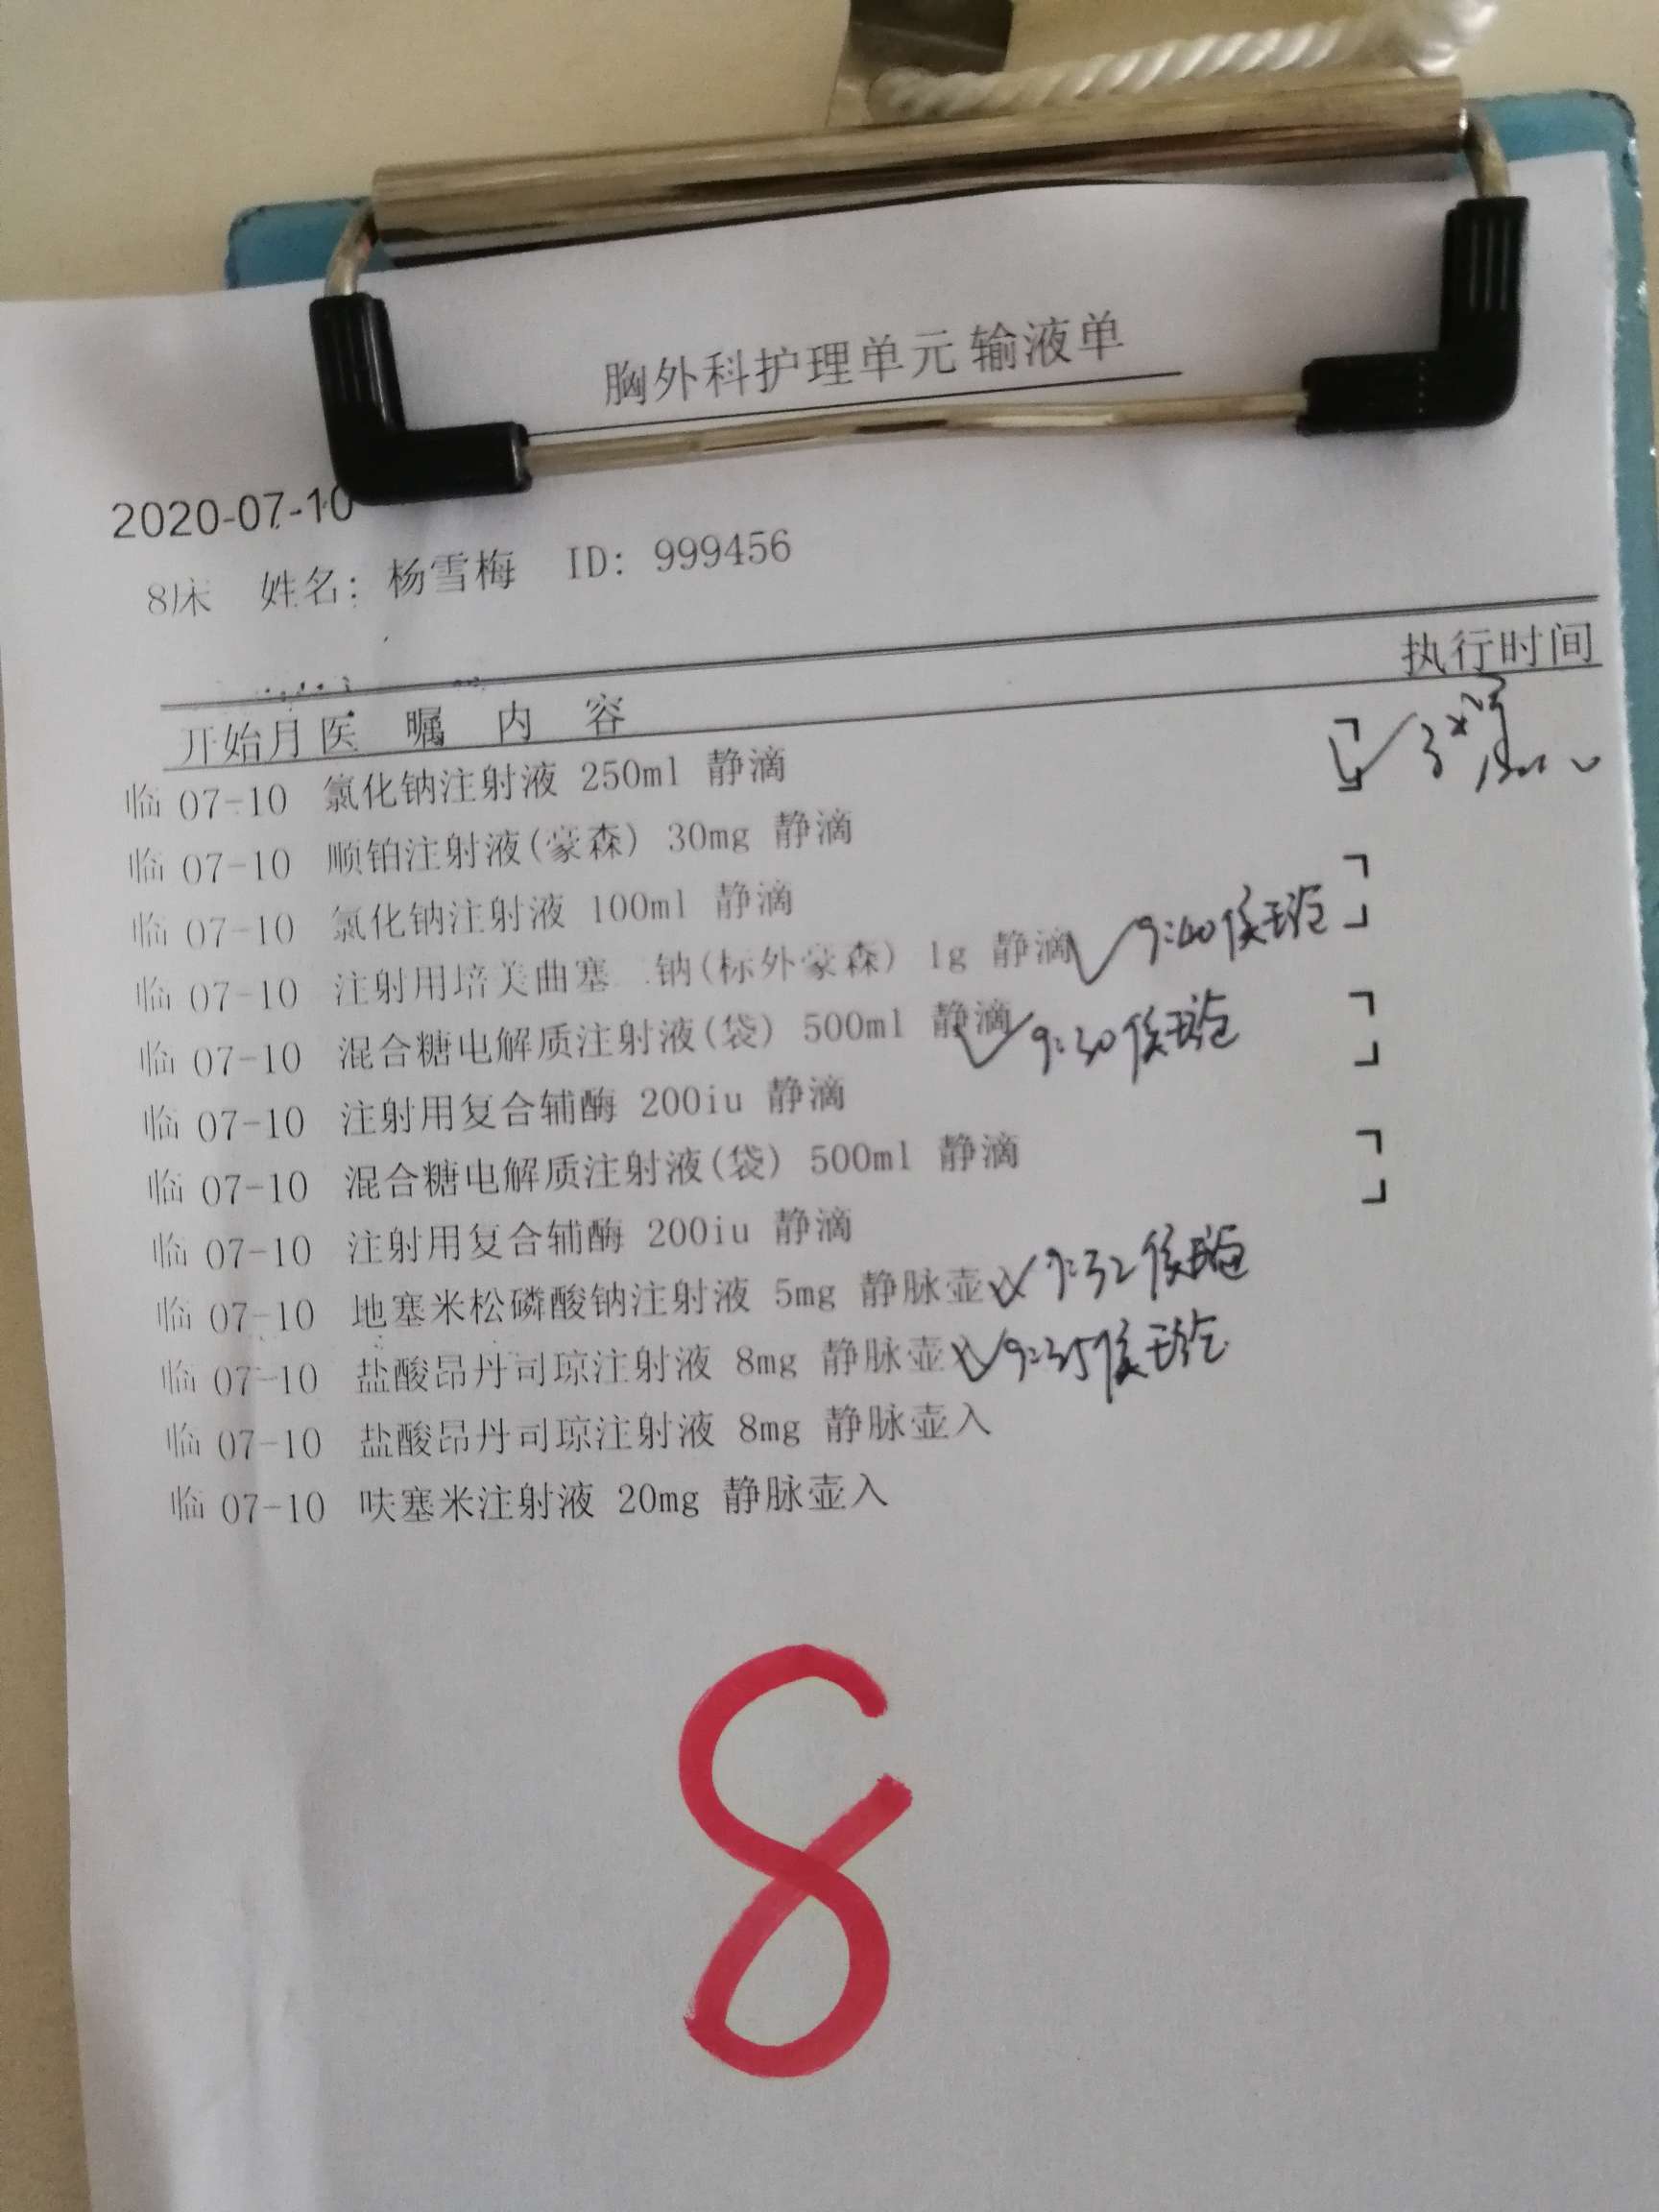 胸外科护理单元 输液单
2020-07-10
8床 姓名: 杨雪梅 ID: 999456
执行时间
开始月 医 嘱 内 容
临 07-10 氯化钠注射液 250ml 静滴
临 07-10 顺铂注射液(豪森) 30mg 静滴
临 07-10 氯化钠注射液 100ml 静滴
临 07-10 注射用培美曲塞 钠(标外豪森) 1g 静滴 9:40
临 07-10 混合糖电解质注射液(袋) 500ml 静滴 9:30
临 07-10 注射用复合辅酶 200iu 静滴
临 07-10 混合糖电解质注射液(袋) 500ml 静滴
临 07-10 注射用复合辅酶 200iu 静滴
临 07-10 地塞米松磷酸钠注射液 5mg 静脉壶入 9:32
临 07-10 盐酸昂丹司琼注射液 8mg 静脉壶入 9:35
临 07-10 盐酸昂丹司琼注射液 8mg 静脉壶入
临 07-10 呋塞米注射液 20mg 静脉壶入
8